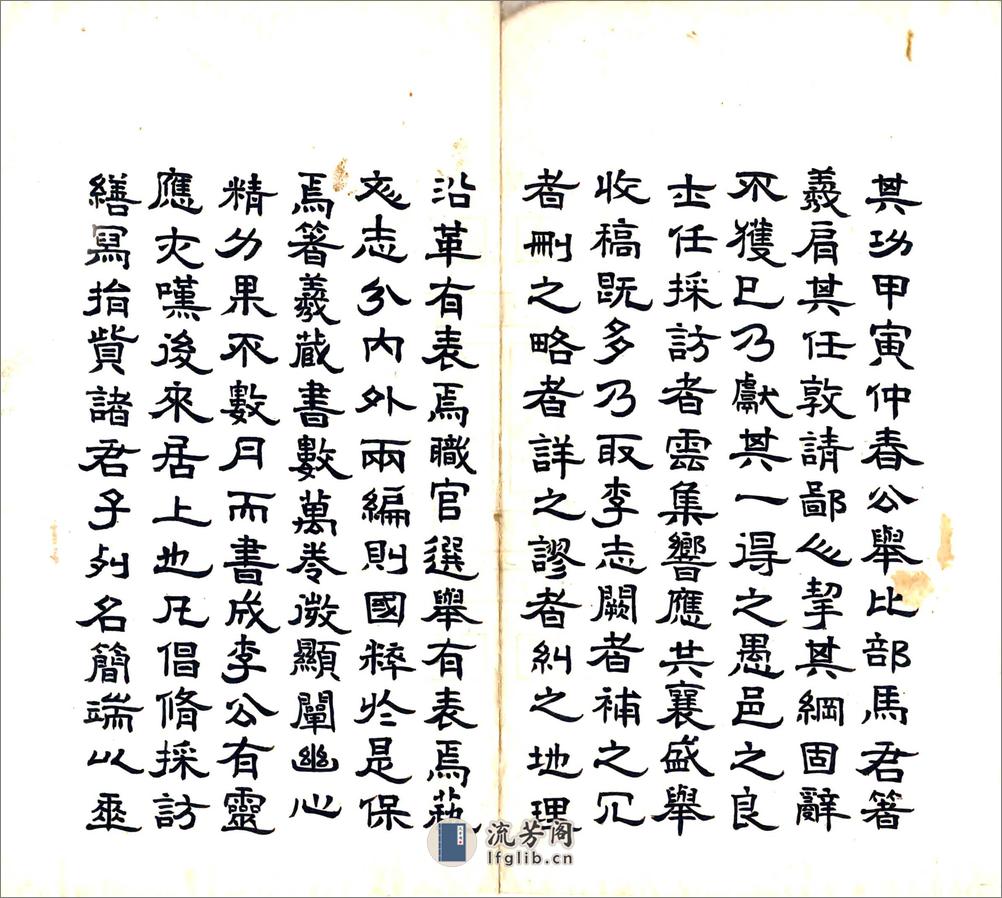 其功甲寅仲春公舉比部馬君箸
羲肩其任敦請鄙人挈其綱固辭
不獲已乃獻其一得之愚邑之良
士任採訪者雲集響應共襄盛舉
收稿既多乃取李志闕者補之冗
者刪之略者詳之謬者糾之地理
沿革有表焉職官選舉有表焉藝
文志分內外兩編則國粹於是保
焉箸羲藏書數萬卷微顯闡幽心
精力果不數月而書成李公有靈
應灾嘆後來居上也凡倡脩採訪
繕寫捐貲諸君子列名簡端以垂
流芳阁
lfglib.cn